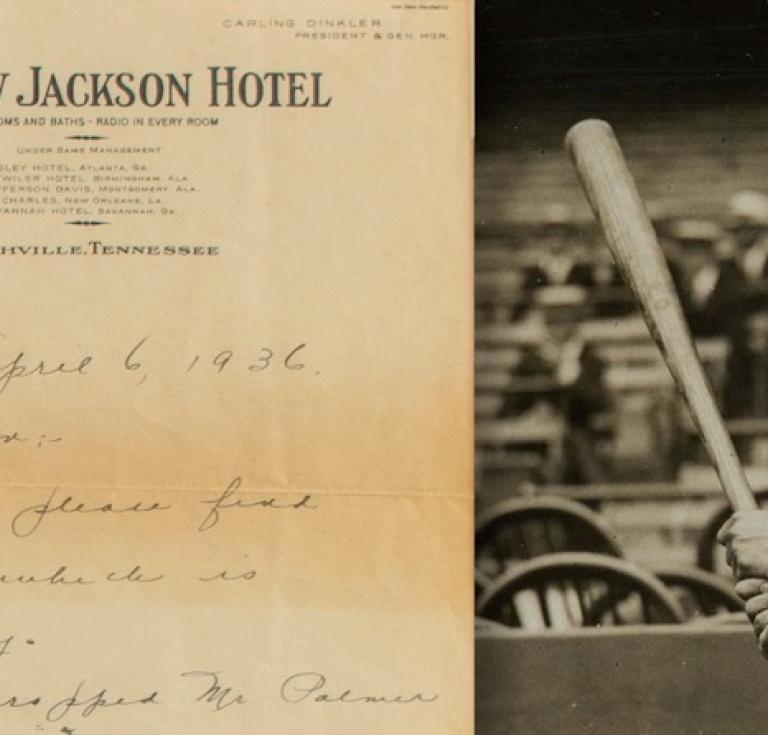 CARLING DINKLER
PRESIDENT & GEN. MGR.
W JACKSON HOTEL
OMS AND BATHS - RADIO IN EVERY ROOM
UNDER SAME MANAGEMENT
SLEY HOTEL, ATLANTA, GA.
TWILER HOTEL, BIRMINGHAM, ALA.
FFERSON DAVIS, MONTGOMERY, ALA.
CHARLES, NEW ORLEANS, LA.
VANNAH HOTEL, SAVANNAH, GA.
HVILLE, TENNESSEE
pril 6, 1936.
please find
which is
ropped Mr Palmer